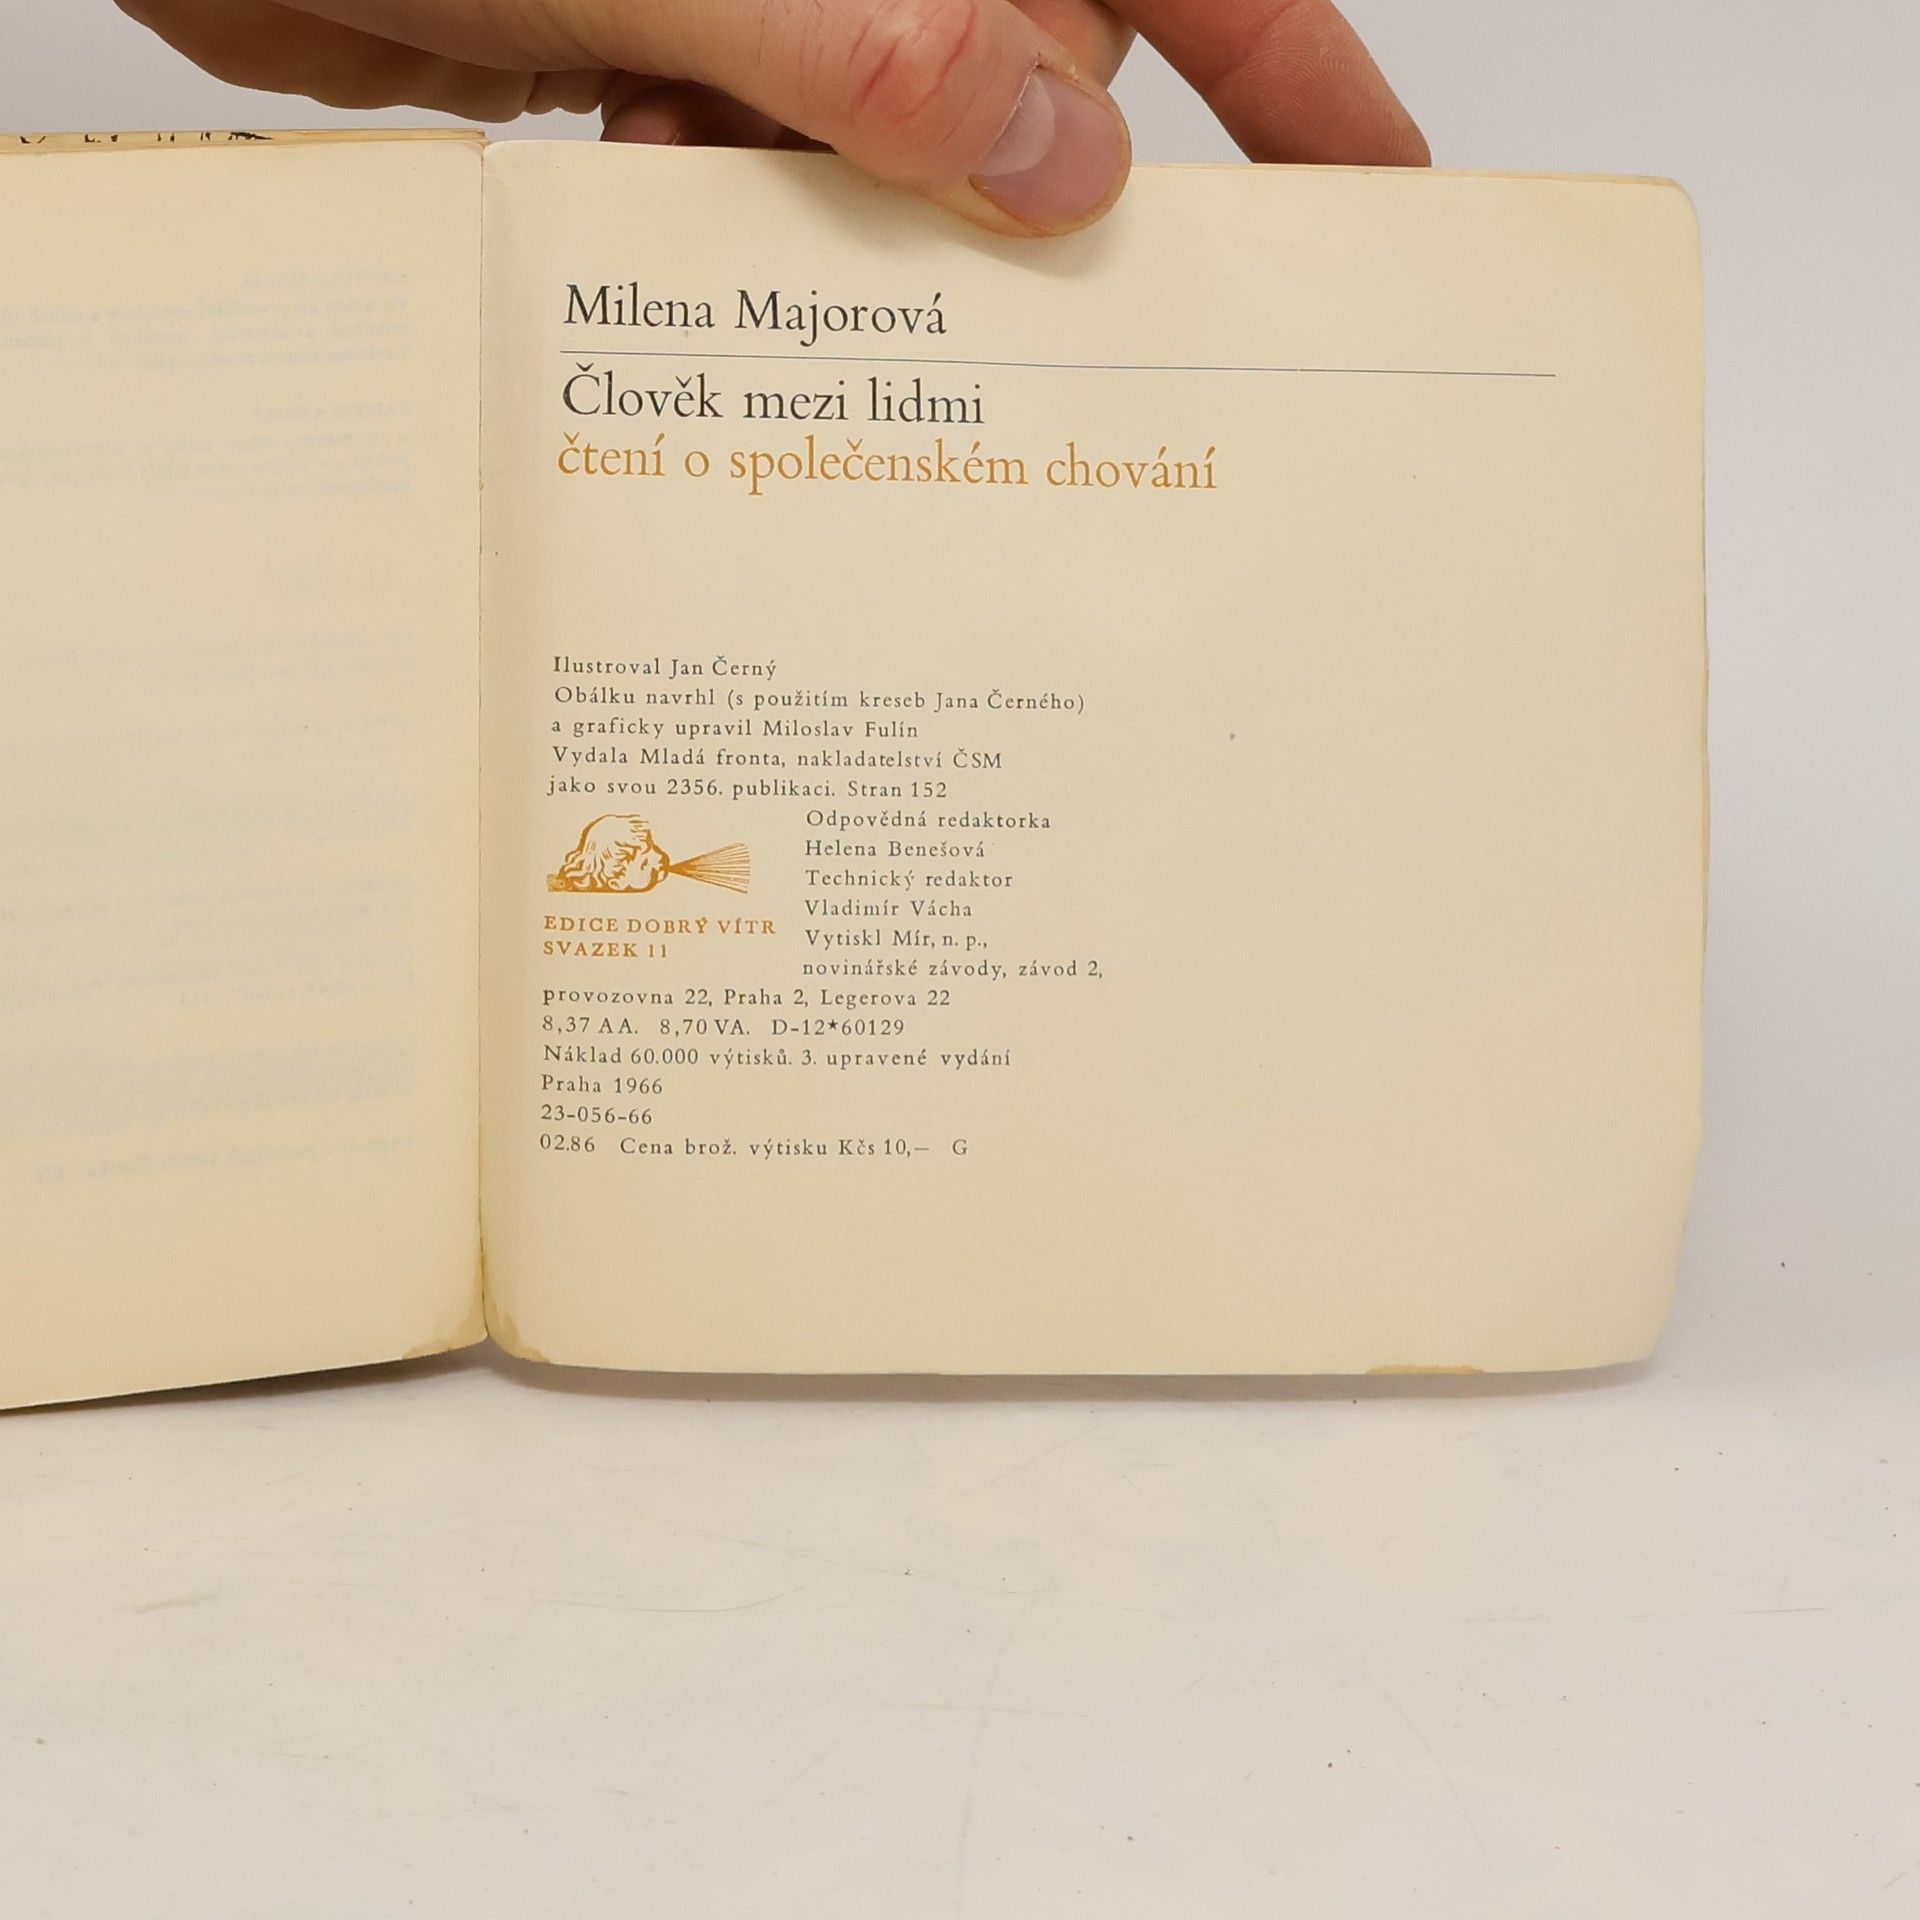 Milena Majorová
Člověk mezi lidmi
čtení o společenském chování
Ilustroval Jan Černý
Obálku navrhl (s použitím kreseb Jana Černého)
a graficky upravil Miloslav Fulín
Vydala Mladá fronta, nakladatelství ČSM
jako svou 2356. publikaci. Stran 152
EDICE DOBRÝ VÍTR
SVAZEK 11
Odpovědná redaktorka
Helena Benešová
Technický redaktor
Vladimír Vácha
Vytiskl Mír, n. p.,
novinářské závody, závod 2,
provozovna 22, Praha 2, Legerova 22
8,37 AA. 8,70 VA. D-12*60129
Náklad 60.000 výtisků. 3. upravené vydání
Praha 1966
23-056-66
02.86 Cena brož. výtisku Kčs 10,— G